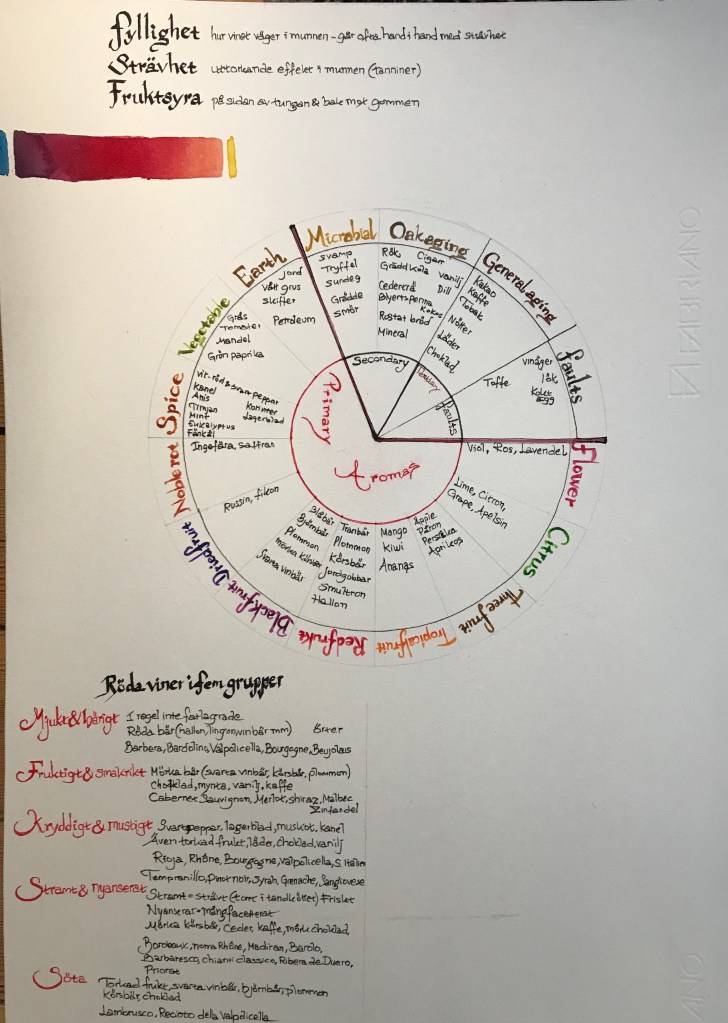 Fyllighet hur vinet väger i munnen - går ofta hand i hand med strävhet
Strävhet uttorkande effekt i munnen (tanniner)
Fruktsyra på sidan av tungan & bak mot gommen
FABRIANO
Microbial
svamp
Tryffel
surdeg
Grädde
smör
Oakageing
Rök Cigarr
Gräddkola vanilj
Cedererä Dill
Blyertspenna Kokos
Rostat bröd
Mineral
Generalaging
Kakao
Kaffe
Tobak
Nötter
Läder
Choklad
Faults
vinäger
lök
Kokt
ägg
Toffe
Earth
jord
Vått grus
skiffer
Petroleum
Vegetable
Gräs
Tomater
Mandel
Grön paprika
Spice
Vit- röd & svart peppar
Kanel
Anis Korinter
Timjan Lagerblad
Mint
Eukalyptus
Fänkål
Ingefära, saffran
Noblerot
Russin, fikon
Driedfruit
Blackfruit
Blåbär
Björnbär
Plommon
mörka körsbär
Svarta vinbär
Redfrukt
Tranbär
Plommon
Körsbär
Jordgubbar
Smultron
Hallon
Tropicalfruit
Mango
Kiwi
Ananas
Threefruit
Äpple
Päron
Persika
Aprikos
Citrus
Lime, Citron,
Grape, Apelsin
Flower
Viol, Ros, Lavendel
Primary
Aromas
Secondary
Faults
Röda viner i fem grupper
Mjukt & bärigt I regel inte fatlagrade
Röda bär (hallon, lingon, vinbär mm) Örter
Barbera, Bardolino, Valpolicella, Bourgogne, Beujolais
Fruktigt & smakrikt Mörka bär (svarta vinbär, körsbär, plommon)
Choklad, mynta, vanilj, kaffe
Cabernet Sauvignon, Merlot, shiraz, Malbec
Zinfandel
Kryddigt & mustigt Svartpeppar, lagerblad, muskot, kanel
Även torkad frukt, läder, choklad, vanilj
Rioja, Rhône, Bourgogne, Valpolicella, S. Italien
Tempranillo, Pinot noir, Syrah, Grenache, Sangiovese
Stramt & nyanserat Stramt = strävt (torrt i tandköttet) Friskt
Nyanserat = mångfacetterat
Mörka körsbär, Ceder, kaffe, mörk choklad,
Bordeaux, norra Rhône, Madiran, Barolo,
Barbaresco, chianti classico, Ribera de Duero,
Priorat
Söta Torkad frukt, svarta vinbär, björnbär, plommon
Körsbär, choklad
Lambrusco, Recioto della Valpolicella
ANO